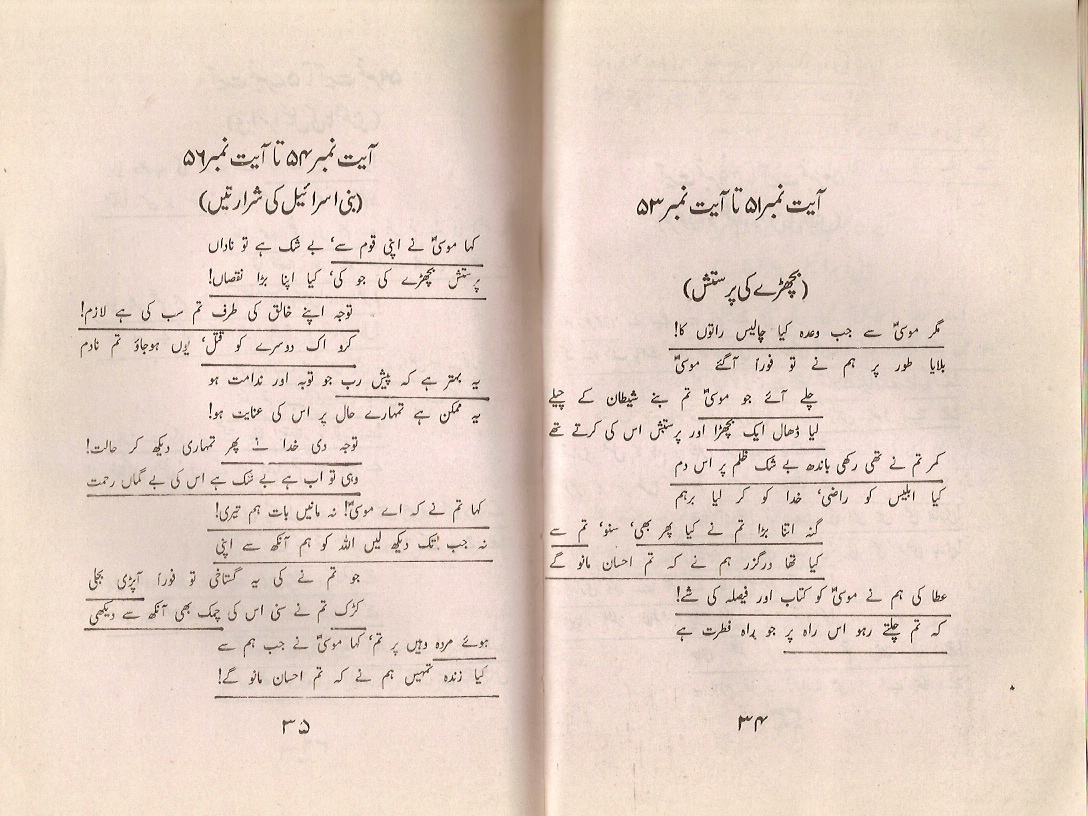 آیت نمبر ۵۱ تا آیت نمبر ۵۳
(بچھڑے کی پرستش)
مگر موسیٰؑ سے جب وعدہ کیا چالیس راتوں کا!
بلایا طور پر ہم نے تو فوراً آگئے موسیٰؑ
چلے آئے جو موسیٰؑ تم بنے شیطان کے چیلے
لیا ڈھال ایک بچھڑا اور پرستش اس کی کرتے تھے
کمر تم نے تھی رکھی باندھ بے شک ظلم پر اس دم
کیا ابلیس کو راضی، خدا کو کر لیا برہم
گنہ اتنا بڑا تم نے کیا پھر بھی، سنو، تم سے
کیا تھا درگزر ہم نے کہ تم احسان مانو گے
عطا کی ہم نے موسیٰؑ کو کتاب اور فیصلہ کی شے!
کہ تم چلتے رہو اس راہ پر جو راہ فطرت ہے
۳۴
آیت نمبر ۵۴ تا آیت نمبر ۵۶
(بنی اسرائیل کی شرارتیں)
کہا موسیٰؑ نے اپنی قوم سے، بے شک ہے تو ناداں
پرستش بچھڑے کی جو کی، کیا اپنا بڑا نقصاں!
توجہ اپنے خالق کی طرف تم سب کی ہے لازم!
کرو اک دوسرے کو قتل، یوں ہوجاؤ تم نادم
یہ بہتر ہے کہ پیش رب جو توبہ اور ندامت ہو
یہ ممکن ہے تمہارے حال پر اس کی عنایت ہو!
توجہ دی خدا نے پھر تمہاری دیکھ کر حالت!
وہی تو اب ہے بے شک ہے اس کی بے گماں رحمت
کہا تم نے کہ اے موسیٰؑ! نہ مانیں بات ہم تیری!
نہ جب تک دیکھ لیں اللہ کو ہم آنکھ سے اپنی
جو تم نے کی یہ گستاخی تو فوراً آپڑی بجلی
کڑک تم نے سنی اس کی چمک بھی آنکھ سے دیکھی
ہوئے مردہ وہیں پر تم، کہا موسیٰؑ نے جب ہم سے
کیا زندہ تمہیں ہم نے کہ تم احسان مانو گے!
۳۵